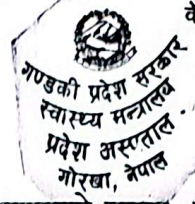 गण्डकी प्रदेश सरकार
स्वास्थ्य मन्त्रालय
प्रदेश अस्पताल
गोरखा, नेपाल